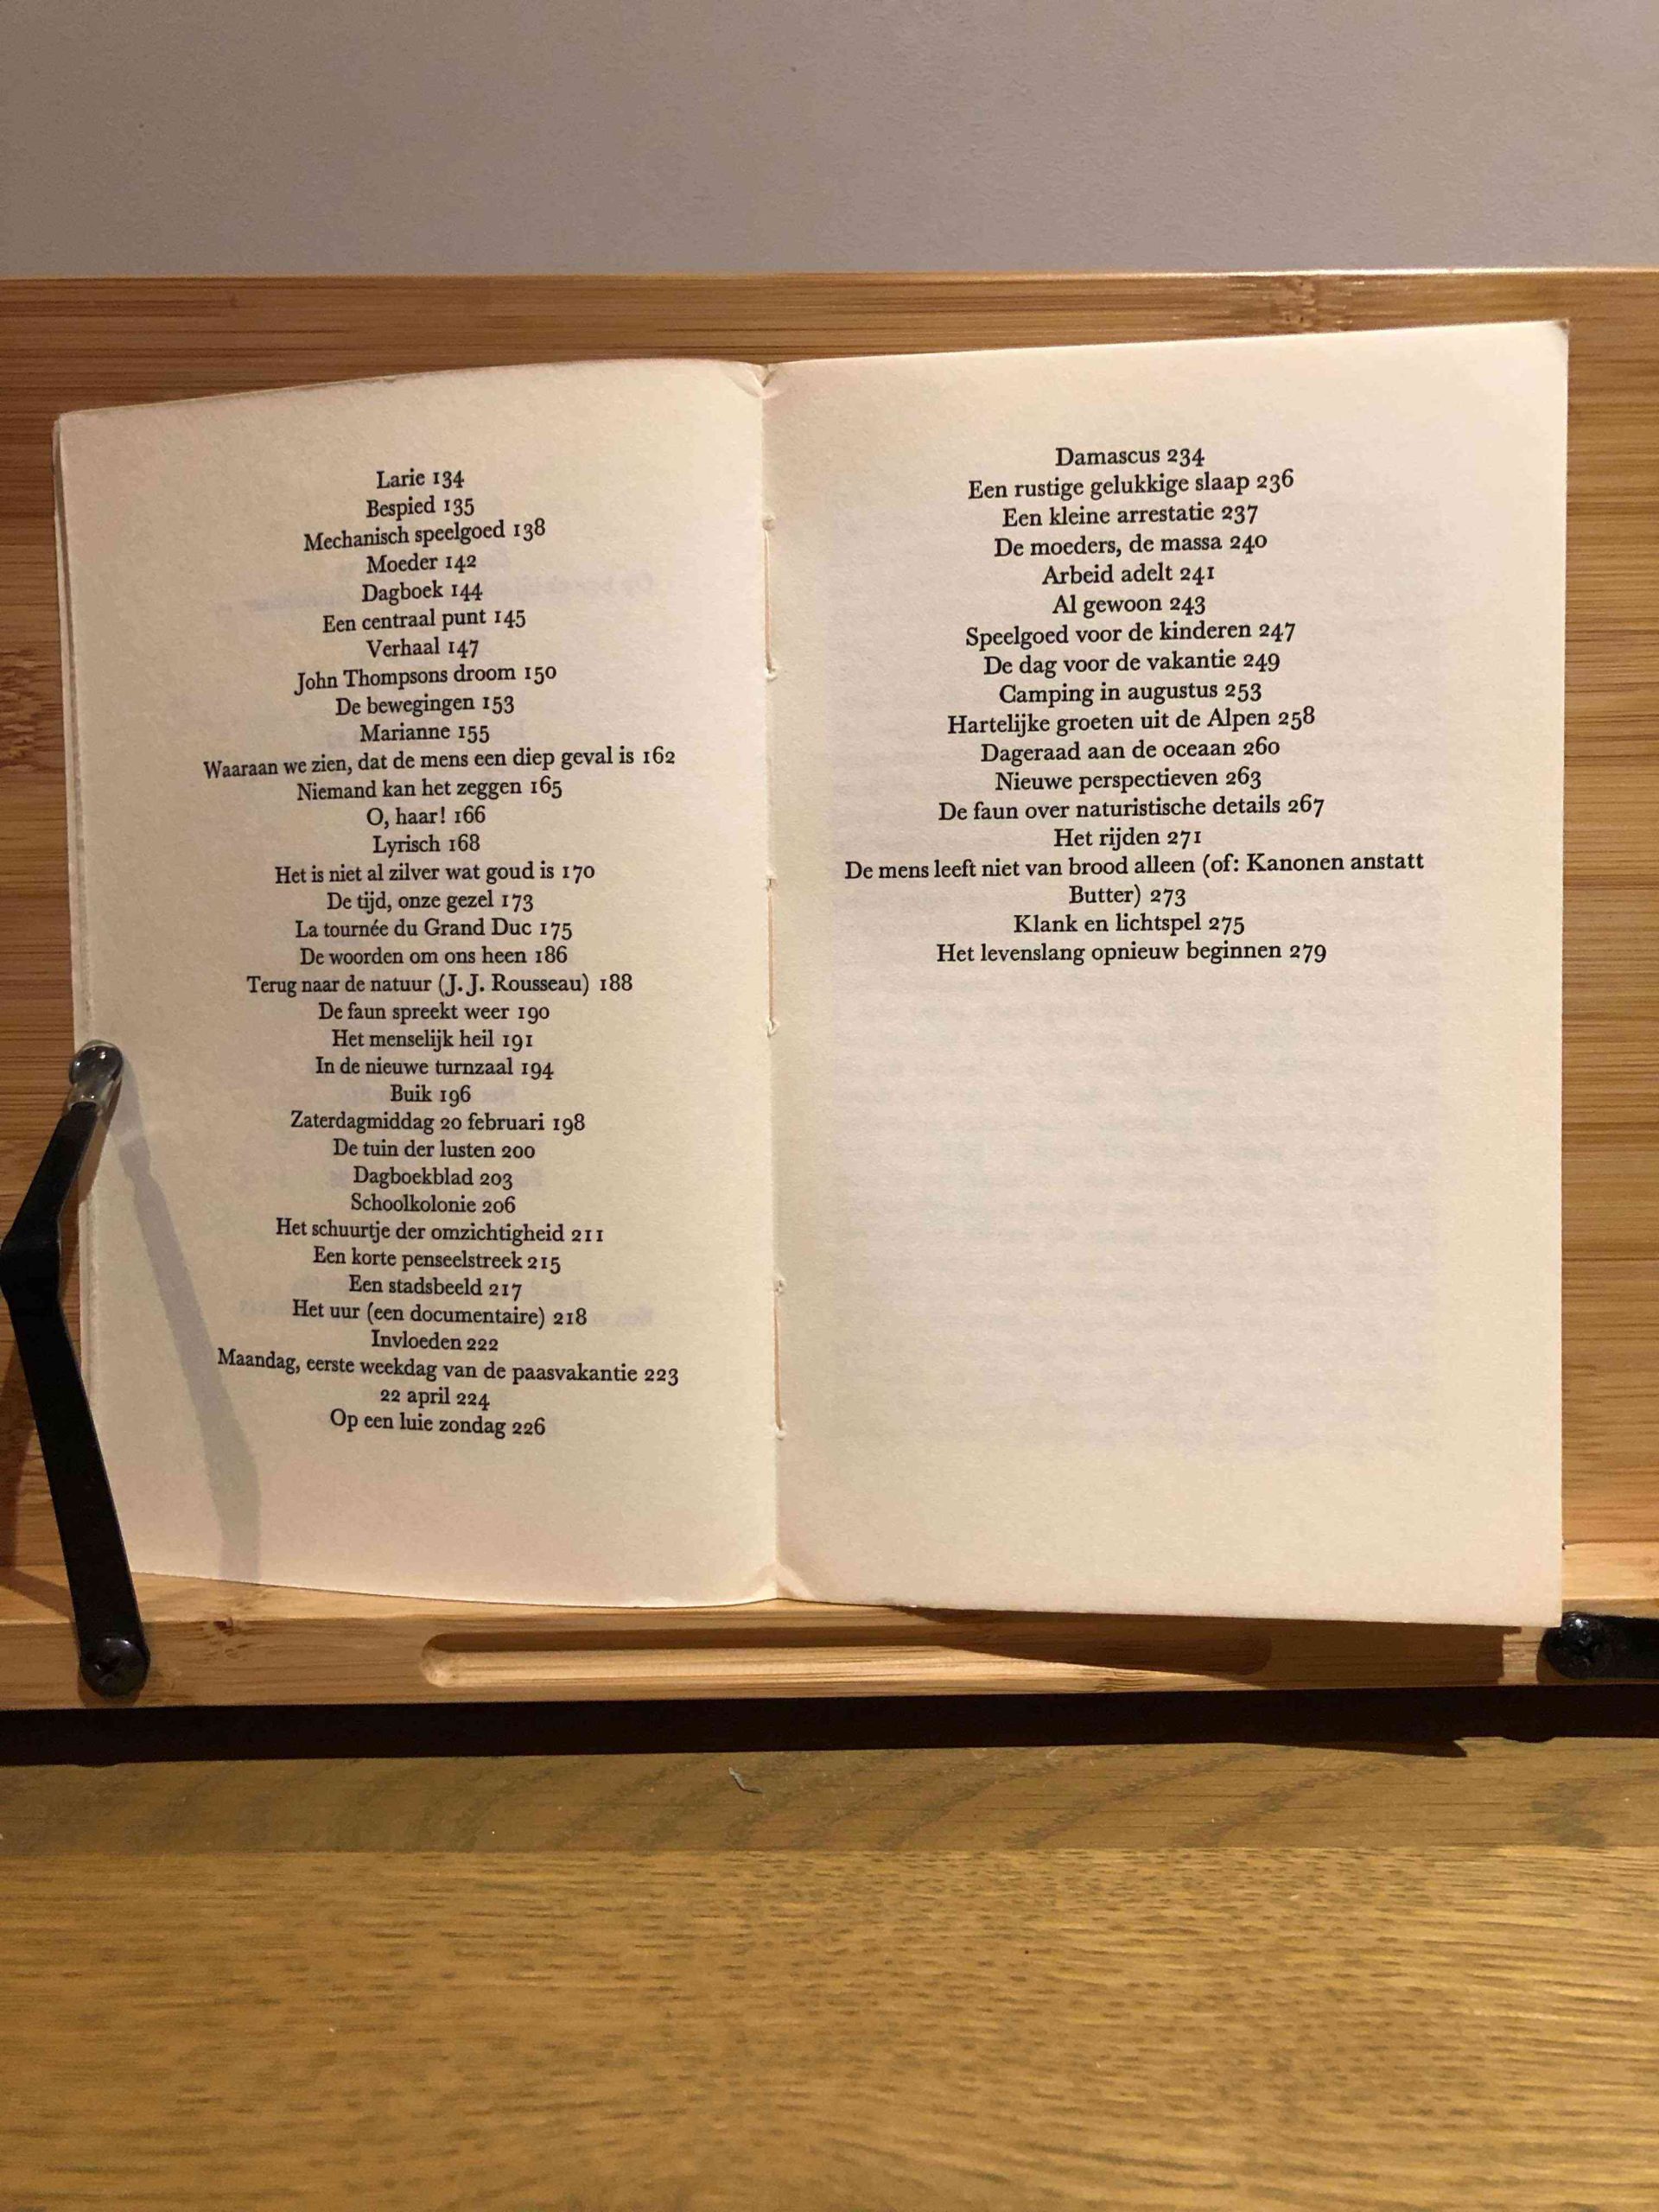 Larie 134
Bespied 135
Mechanisch speelgoed 138
Moeder 142
Dagboek 144
Een centraal punt 145
Verhaal 147
John Thompsons droom 150
De bewegingen 153
Marianne 155
Waaraan we zien, dat de mens een diep geval is 162
Niemand kan het zeggen 165
O, haar! 166
Lyrisch 168
Het is niet al zilver wat goud is 170
De tijd, onze gezel 173
La tournée du Grand Duc 175
De woorden om ons heen 186
Terug naar de natuur (J. J. Rousseau) 188
De faun spreekt weer 190
Het menselijk heil 191
In de nieuwe turnzaal 194
Buik 196
Zaterdagmiddag 20 februari 198
De tuin der lusten 200
Dagboekblad 203
Schoolkolonie 206
Het schuurtje der omzichtigheid 211
Een korte penseelstreek 215
Een stadsbeeld 217
Het uur (een documentaire) 218
Invloeden 222
Maandag, eerste weekdag van de paasvakantie 223
22 april 224
Op een luie zondag 226
Damascus 234
Een rustige gelukkige slaap 236
Een kleine arrestatie 237
De moeders, de massa 240
Arbeid adelt 241
Al gewoon 243
Speelgoed voor de kinderen 247
De dag voor de vakantie 249
Camping in augustus 253
Hartelijke groeten uit de Alpen 258
Dageraad aan de oceaan 260
Nieuwe perspectieven 263
De faun over naturistische details 267
Het rijden 271
De mens leeft niet van brood alleen (of: Kanonen anstatt
Butter) 273
Klank en lichtspel 275
Het levenslang opnieuw beginnen 279